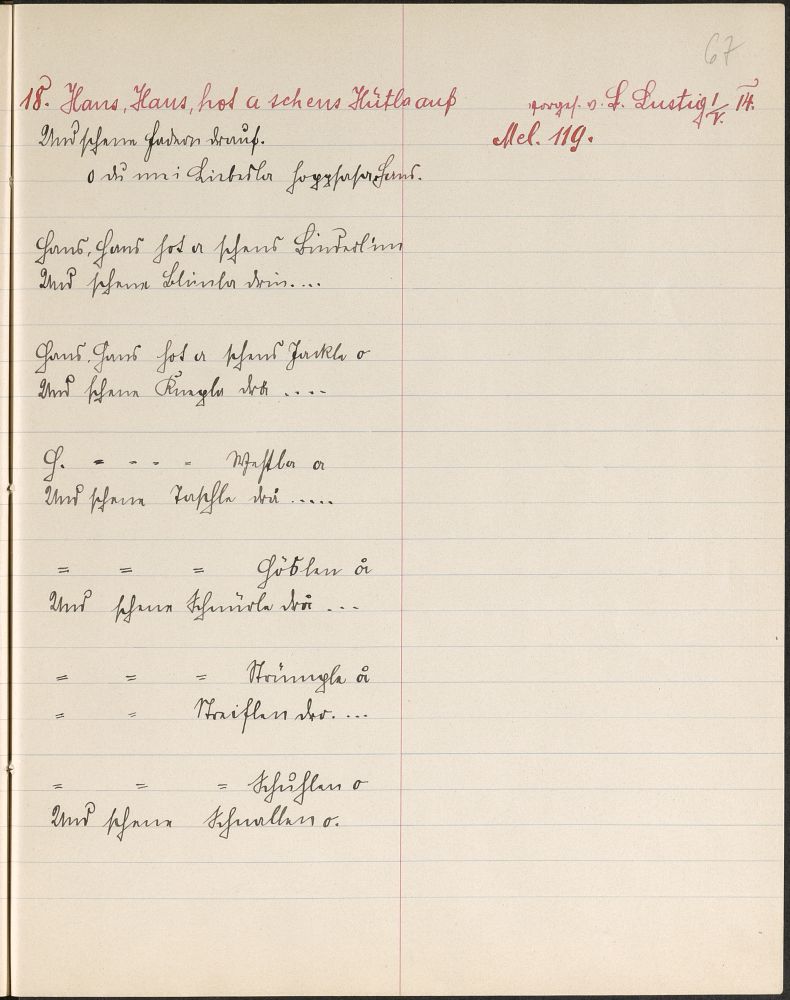 67
18. Hans, Hans, hot a schens Hütla auf
vorges. v. L. Lustig 1/V. 14.
Mel. 119.
Und schene Federn drauf.
o du mei Liebesla hoppsasa Hans.
Hans, Hans hot a schens Binderl im
Und schene Blümla drin....
Hans, Hans hot a schens Jackla o
Und schene Knepla dra ....
H. = - - = Westla a
Und schene Taschle drå .....
= = = Höslen å
Und schene Schnürle drå ...
= = = Strümpla å
= = Streiflen dro. ...
= = = Schuhlen o
Und schene Schnallen o.